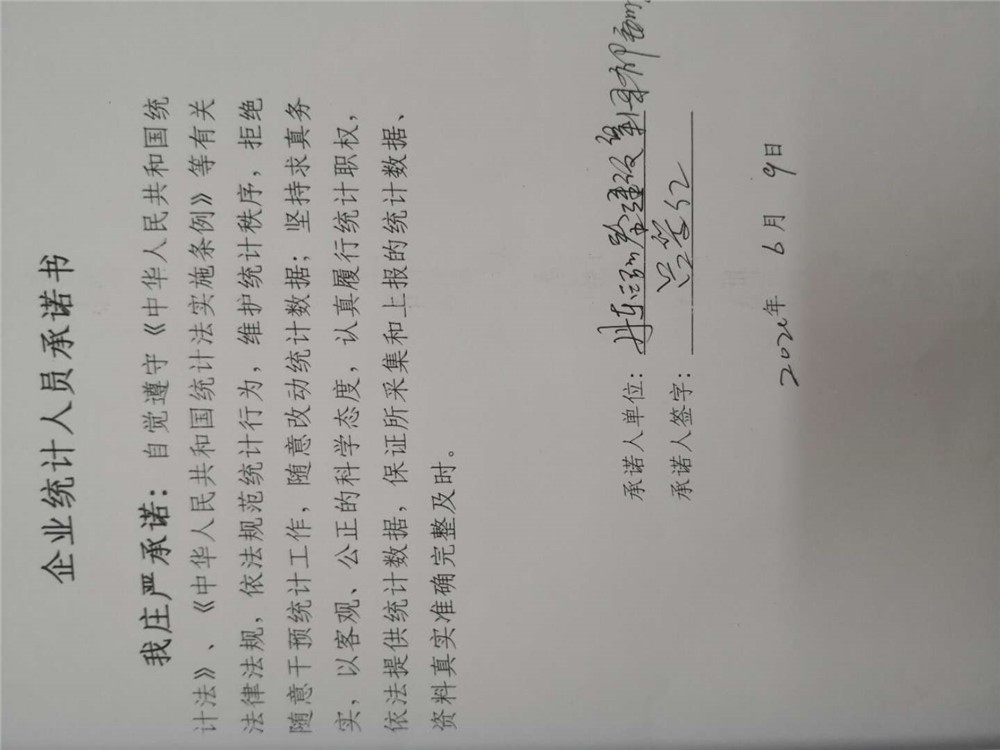 企业统计人员承诺书
我庄严承诺：自觉遵守《中华人民共和国统
计法》、《中华人民共和国统计法实施条例》等有关
法律法规，依法规范统计行为，维护统计秩序，拒绝
随意干预统计工作，随意改动统计数据；坚持求真务
实，以客观、公正的科学态度，认真履行统计职权，
依法提供统计数据，保证所采集和上报的统计数据、
资料真实准确完整及时。
承诺人单位：丹东
承诺人签字：
年 6月 9日